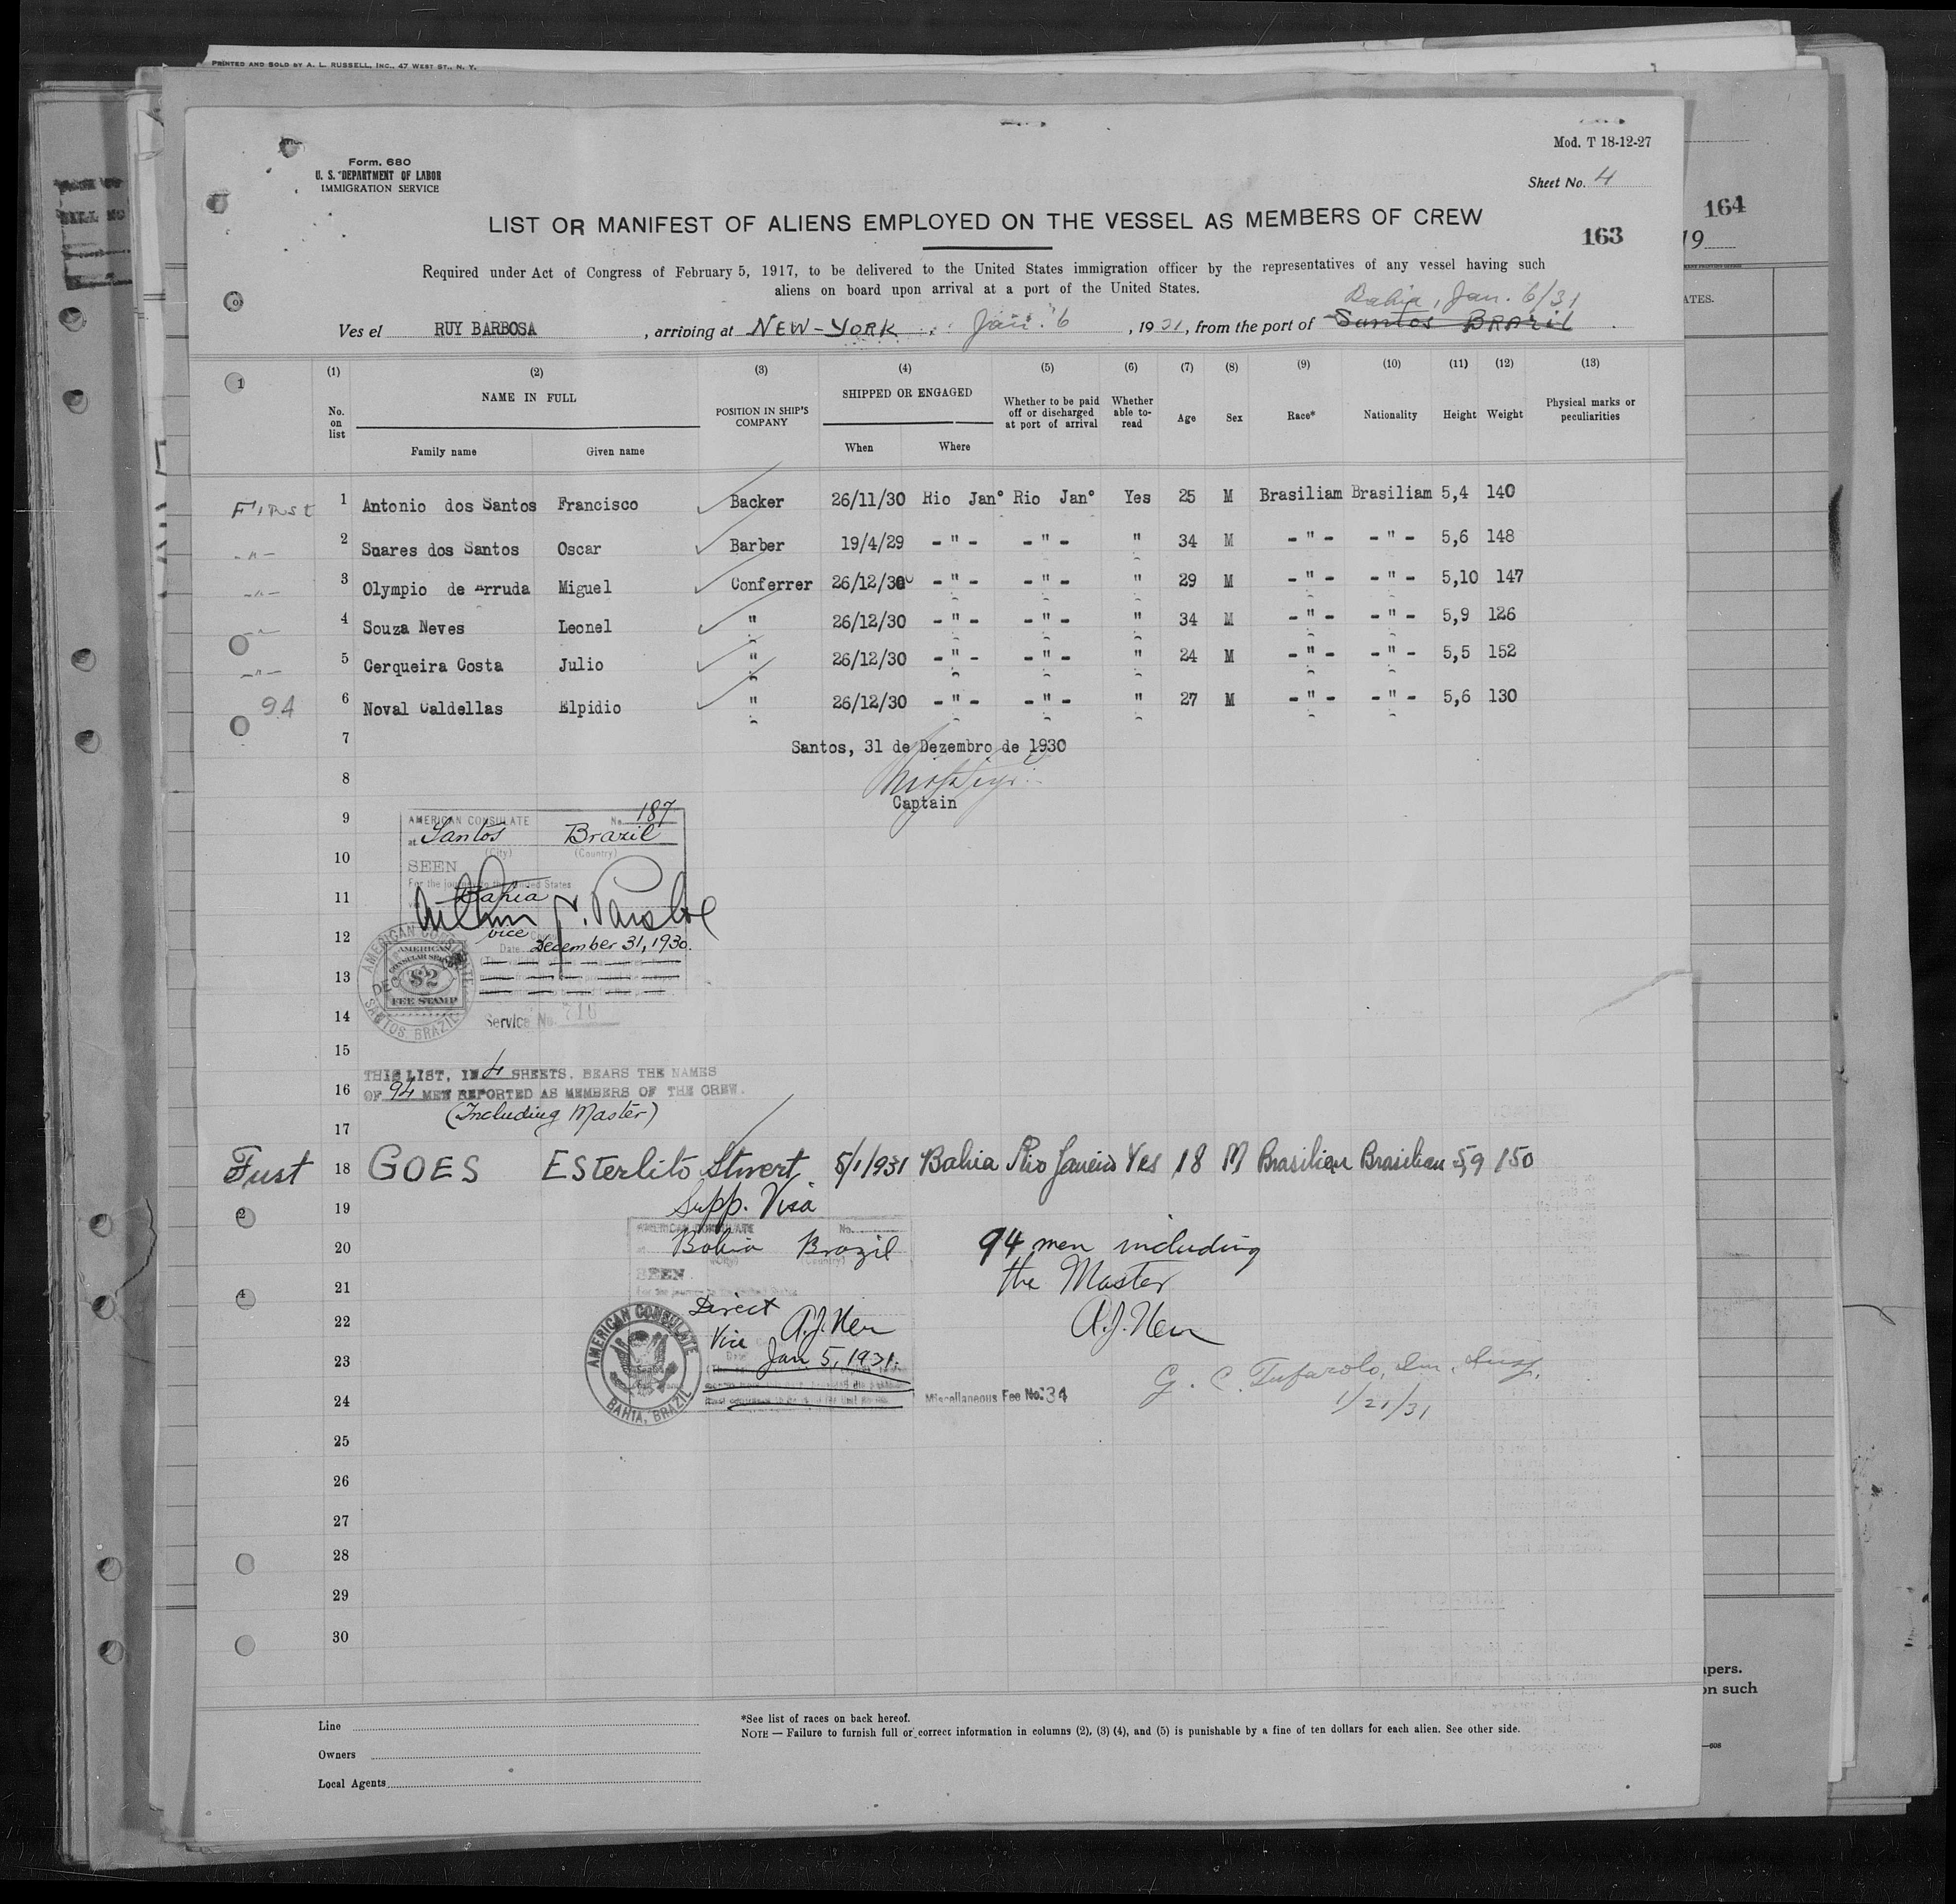 PRINTED AND SOLD BY A. L. RUSSELL, INC., 47 WEST ST., N. Y.
Mod. T 18-12-27
Form. 680
U. S. DEPARTMENT OF LABOR
IMMIGRATION SERVICE
Sheet No. 4
164
19
LIST OR MANIFEST OF ALIENS EMPLOYED ON THE VESSEL AS MEMBERS OF CREW
163
Required under Act of Congress of February 5, 1917, to be delivered to the United States immigration officer by the representatives of any vessel having such
aliens on board upon arrival at a port of the United States.
Bahia, Jan. 6/31
Ves el RUY BARBOSA, arriving at NEW-YORK, Jan. 6, 1931, from the port of Santos BRAZIL
(1) (2) (3) (4) (5) (6) (7) (8) (9) (10) (11) (12) (13)
No. on list NAME IN FULL Family name Given name POSITION IN SHIP'S COMPANY SHIPPED OR ENGAGED When Where Whether to be paid off or discharged at port of arrival Whether able to-read Age Sex Race* Nationality Height Weight Physical marks or peculiarities
First 1 Antonio dos Santos Francisco Backer 26/11/30 Rio Jan° Rio Jan° Yes 25 M Brasiliam Brasiliam 5,4 140
-"- 2 Suares dos Santos Oscar Barber 19/4/29 -"- -"- " 34 M -"- -"- 5,6 148
-"- 3 Olympio de Arruda Miguel Conferrer 26/12/30 -"- -"- " 29 M -"- -"- 5,10 147
-"- 4 Souza Neves Leonel " 26/12/30 -"- -"- " 34 M -"- -"- 5,9 126
-"- 5 Cerqueira Costa Julio " 26/12/30 -"- -"- " 24 M -"- -"- 5,5 152
94 6 Noval Caldellas Elpidio " 26/12/30 -"- -"- " 27 M -"- -"- 5,6 130
7 Santos, 31 de Dezembro de 1930
8
Captain
9 AMERICAN CONSULATE No. 187
at Santos Brazil
10 (City) (Country)
SEEN
For the journey to the United States
11 Bahia
12 vice
Date December 31, 1930.
AMERICAN CONSULATE
SANTOS, BRAZIL
AMERICAN CONSULAR SERVICE
$2
FEE STAMP
13
14 Service No. 710
15
THIS LIST, IN 4 SHEETS, BEARS THE NAMES
16 OF 94 MEN REPORTED AS MEMBERS OF THE CREW.
(Including Master)
17
First 18 GOES Esterlito Stwert 5/1/931 Bahia Rio Janeiro Yes 18 M Brasilian Brasilian 5,9 150
19 Supp. Visa
AMERICAN CONSULATE No.
20 Bahia Brazil
(City) (Country)
94 men including
SEEN
21 the Master
For the journey to the United States
Direct
22 Vice
23 Jan 5, 1931.
AMERICAN CONSULATE
BAHIA, BRAZIL
24 Miscellaneous Fee No. 34
1/21/31
25
26
27
28
29
30
Line
Owners
Local Agents
*See list of races on back hereof.
NOTE — Failure to furnish full or correct information in columns (2), (3) (4), and (5) is punishable by a fine of ten dollars for each alien. See other side.